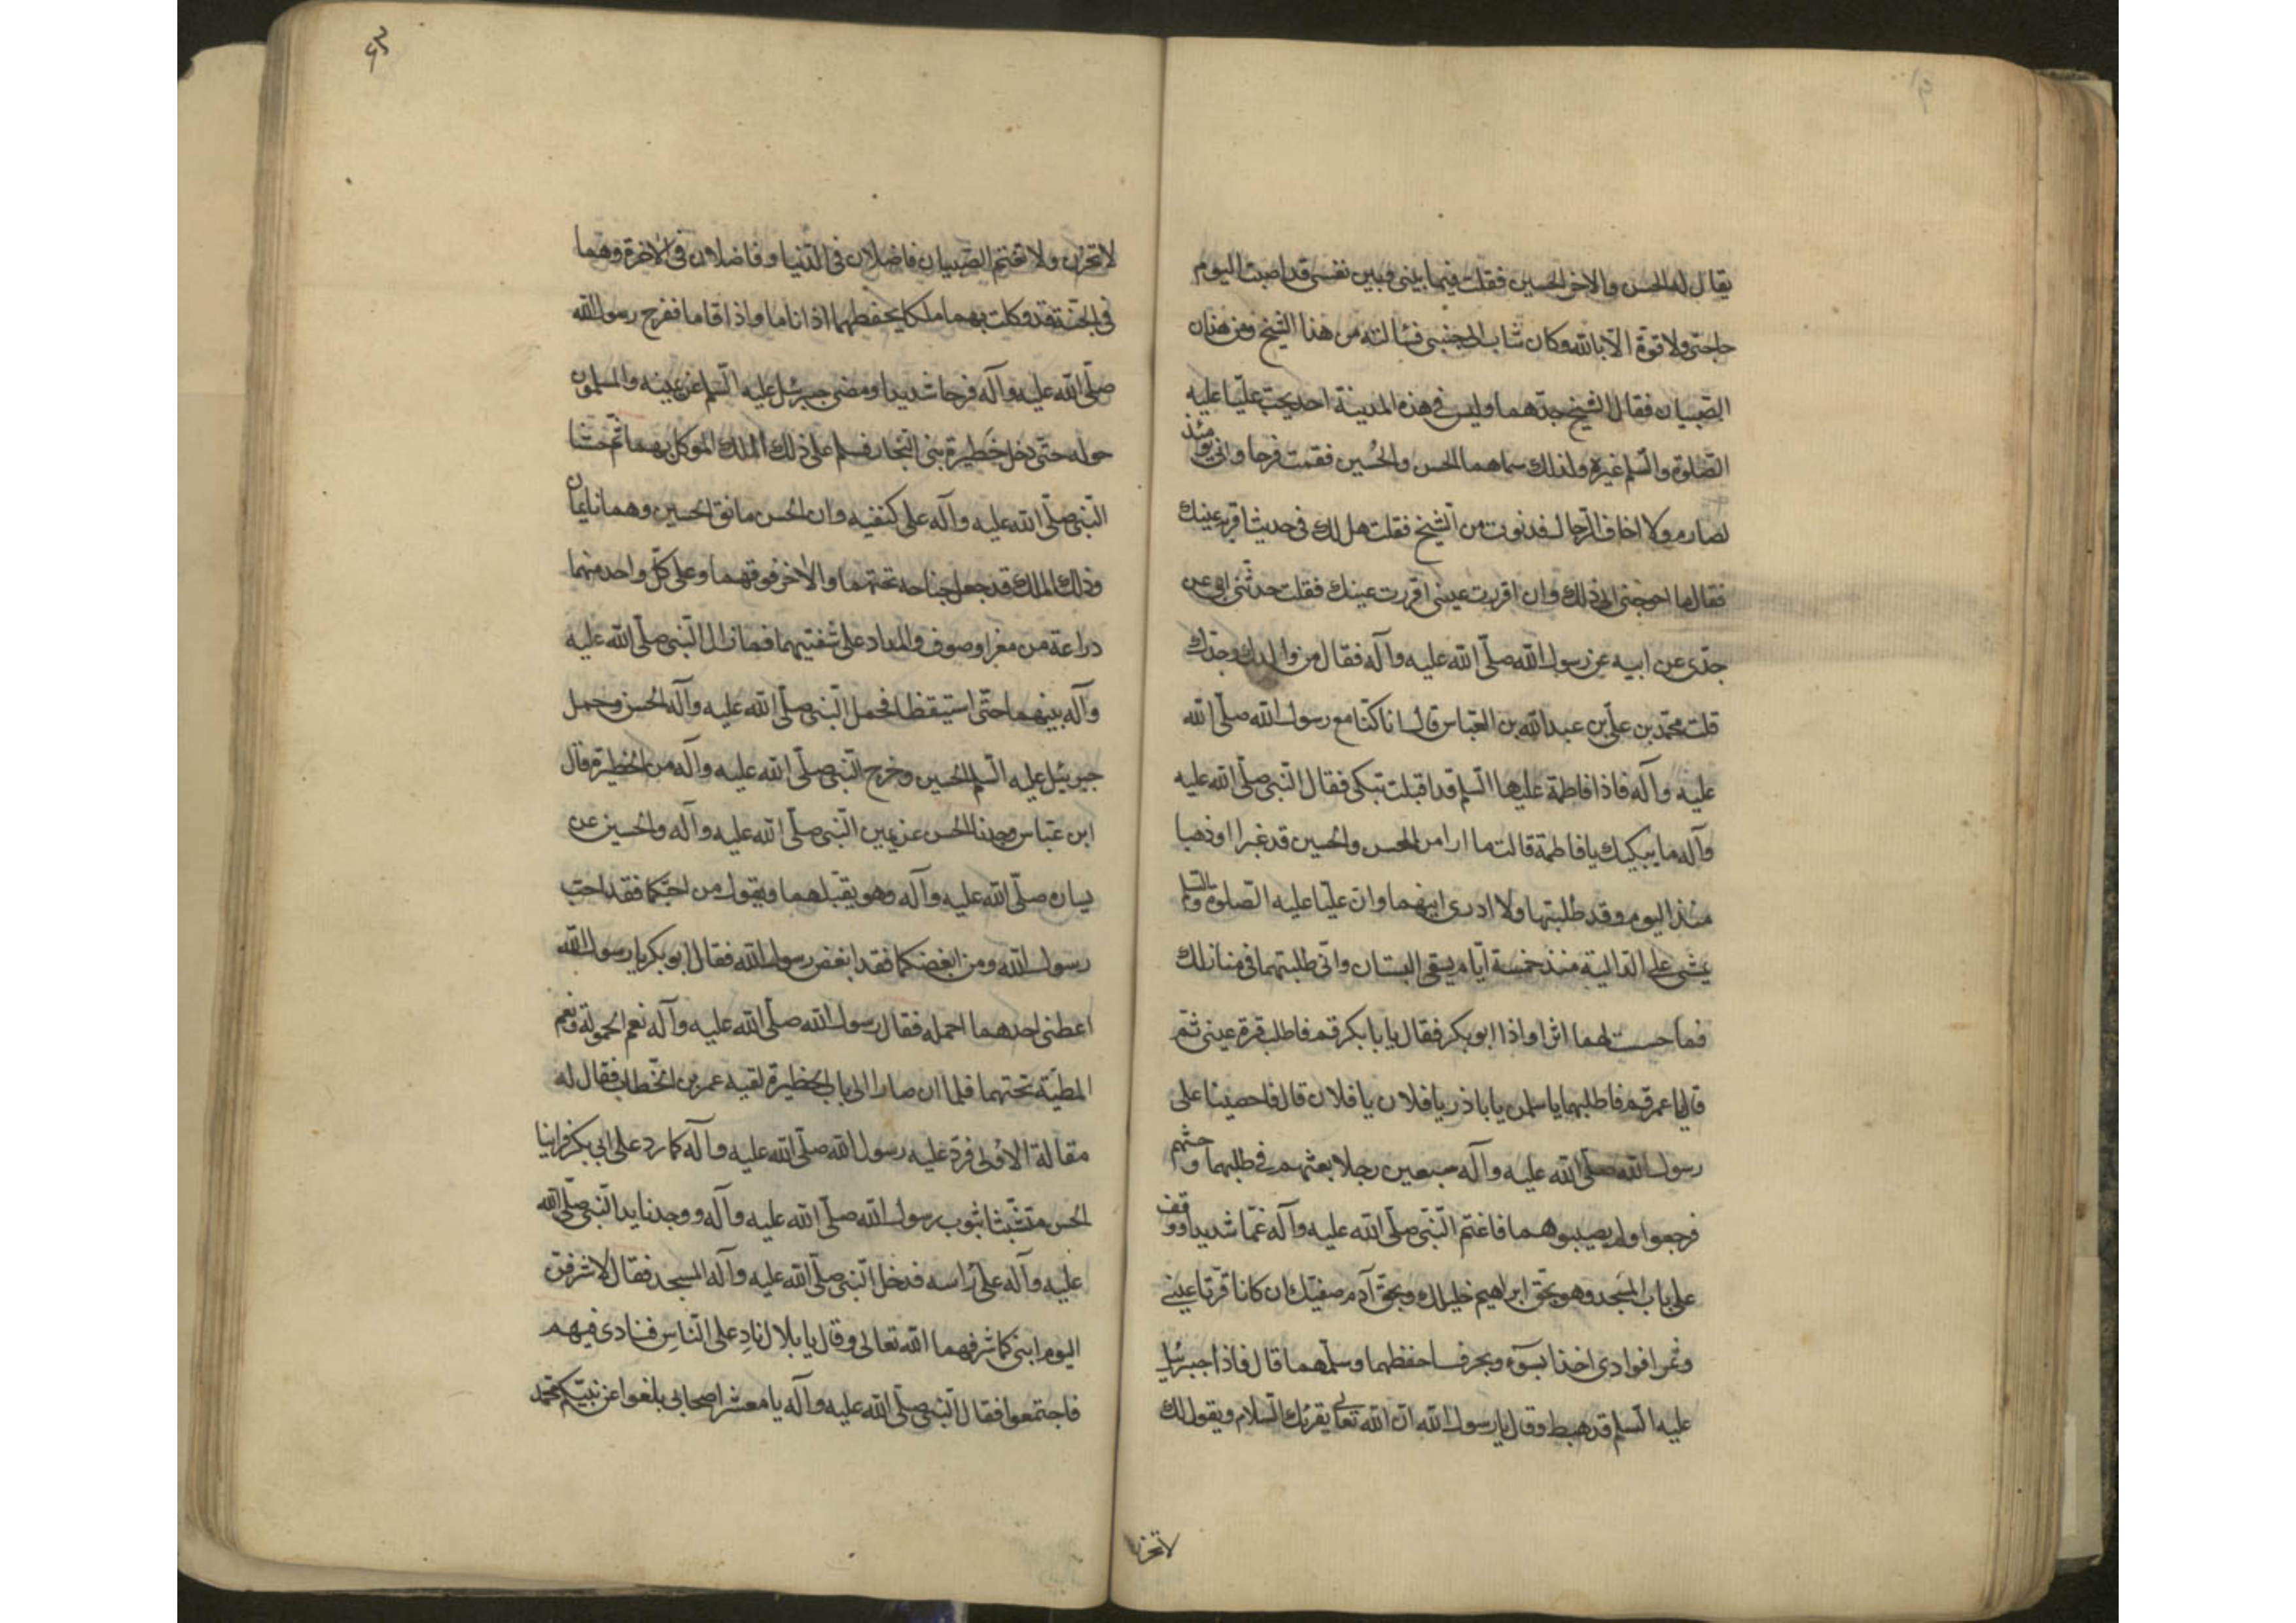 يقال له الحسن والاخر الحسين فقلت فيما بيني وبين نفسي قد اصبت اليوم
حاجتي ولا قوة الا بالله وكان شاب الى جنبي فسألته من هذا الشيخ ومن هذان
الصبيان فقال الشيخ جدهما وليس في هذه المدينة احد يحب عليا عليه
الصلوة والسلم غيره ولذلك سماهما الحسن والحسين فقمت فرحا واني يومئذ
لصارم ولا اخاف الرجال فدنوت من الشيخ فقلت هل لك في حديث اقر به عينك
فقال ما احوجني الى ذلك وان اقررت عيني اقررت عينك فقلت حدثني ابي عن
جدي عن ابيه عن رسول الله صلى الله عليه وآله فقال من والدك وجدك
قلت محمد بن علي بن عبد الله بن العباس قال انا كنا مع رسول الله صلى الله
عليه وآله فاذا فاطمة عليها السلم قد اقبلت تبكي فقال النبي صلى الله عليه
وآله ما يبكيك يا فاطمة قالت ما ارا من الحسن والحسين قد غبرا او ذهبا
منذ اليوم وقد طلبتها ولا ادري اينهما وان عليا عليه الصلوة والسلم
يمشي على الدالية منذ خمسة ايام يسقي البستان واني طلبتهما في منازلك
فما حست لهما اثرا واذا ابو بكر فقال يا با بكر قم فاطلب قرة عيني ثم
قال يا عمر قم فاطلبهما يا سلمن يا باذر يا فلان يا فلان قال فاحصينا على
رسول الله صلى الله عليه وآله سبعين رجلا بعثهم في طلبهما وحثهم
فرجعوا ولم يصيبوهما فاغتم النبي صلى الله عليه وآله غما شديدا ووقف
على باب المسجد وهو بحق ابراهيم خليلك وبحق آدم صفيك ان كانا قرتا عيني
وثمرا فوادي اخذا بسوء وبحر فاحفظهما وسلمهما قال فاذا جبرئيل
عليه السلم قد هبط وقال يا رسول الله ان الله تعالى يقرئك السلام ويقول لك
لا تحزن
لا تحزن ولا تغتم الصبيان فاضلان في الدنيا وفاضلان في الاخرة وهما
في الجنة قد وكلت بهما ملكا يحفظهما اذا ناما واذا قاما ففرح رسول الله
صلى الله عليه وآله فرحا شديدا ومضى جبرئيل عليه السلم عن يمينه والمسلمون
حوله حتى دخل حظيرة بني النجار فسلم على ذلك الملك الموكل بهما ثم جثا
النبي صلى الله عليه وآله على كنفيه وان الحسن معانق الحسين وهما نايمان
وذلك الملك قد جعل جناحه تحتهما والاخر فوقهما وعلى كل واحد منهما
دراعة من مغرا وصوف والمداد على شفتيهما فما زال النبي صلى الله عليه
وآله بينهما حتى استيقظا فحمل النبي صلى الله عليه وآله الحسن وحمل
جبرئيل عليه السلم الحسين وخرج النبي صلى الله عليه وآله من الحظيرة قال
ابن عباس وجدنا الحسن عن يمين النبي صلى الله عليه وآله والحسين عن
يساره صلى الله عليه وآله وهو يقبلهما ويقول من احبكما فقد احب
رسول الله ومن ابغضكما فقد ابغض رسول الله فقال ابو بكر يا رسول الله
اعطني احدهما احمله فقال رسول الله صلى الله عليه وآله نعم الحمولة ونعم
المطية تحتهما فلما ان صارا الى باب الحظيرة لقيه عمر بن الخطاب فقال له
مقالة الاول فرد عليه رسول الله صلى الله عليه وآله كما رد على ابي بكر فراينا
الحسن متشبثا بثوب رسول الله صلى الله عليه وآله ووجدنا يد النبي صلى الله
عليه وآله على راسه فدخل النبي صلى الله عليه وآله المسجد فقال لاشرفن
اليوم ابني كما شرفهما الله تعالى وقال يا بلال ناد على الناس فنادى فيهم
فاجتمعوا فقال النبي صلى الله عليه وآله يا معشر اصحابي بلغوا عن نبيكم محمد